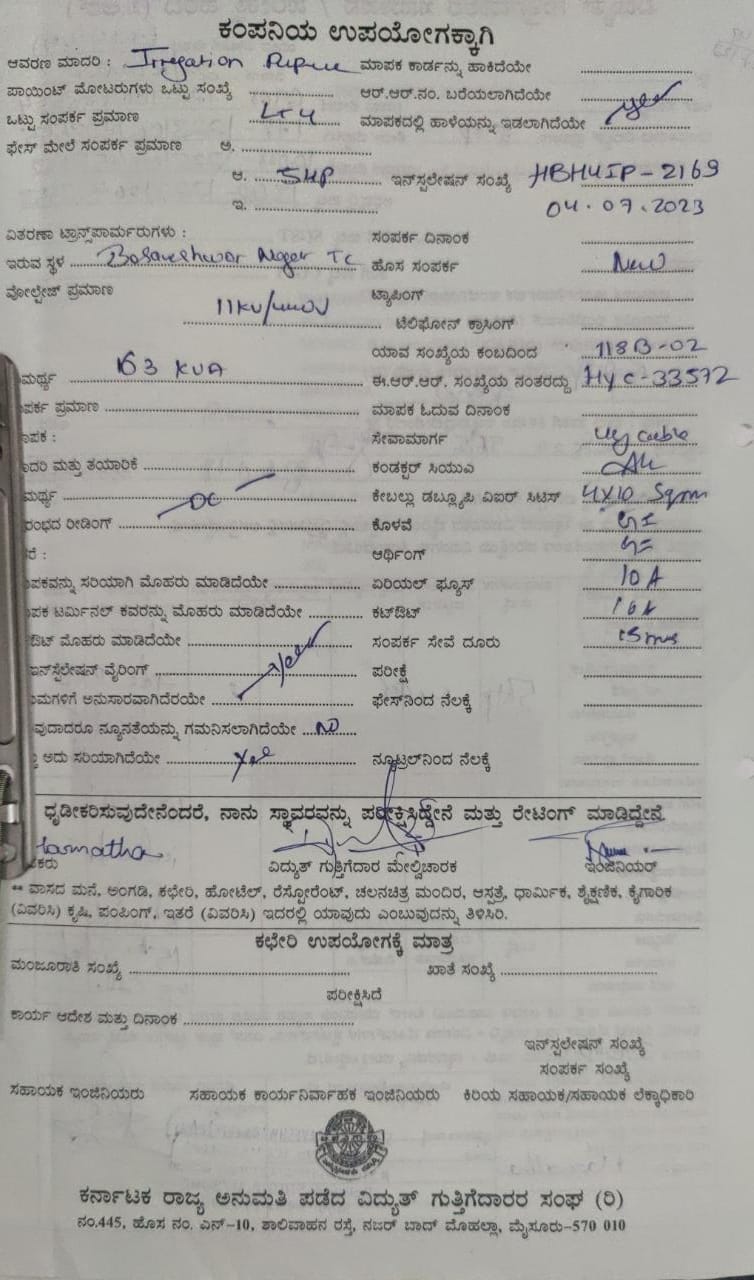 ಕಂಪನಿಯ ಉಪಯೋಗಕ್ಕಾಗಿ
ಆವರಣ ಮಾದರಿ : Irregation ಮಾಪಕ ಕಾರ್ಡನ್ನು ಹಾಕಿದೆಯೇ
ಪಾಯಿಂಟ್ ಮೋಟರುಗಳು ಒಟ್ಟು ಸಂಖ್ಯೆ ಆರ್.ಆರ್.ನಂ. ಬರೆಯಲಾಗಿದೆಯೇ
ಒಟ್ಟು ಸಂಪರ್ಕ ಪ್ರಮಾಣ LT4 ಮಾಪಕದಲ್ಲಿ ಹಾಳೆಯನ್ನು ಇಡಲಾಗಿದೆಯೇ yes
ಫೇಸ್ ಮೇಲೆ ಸಂಪರ್ಕ ಪ್ರಮಾಣ ಅ.
ಆ. 5HP ಇನ್‌ಸ್ಟಲೇಷನ್ ಸಂಖ್ಯೆ HBH4IP-2169
ಇ. 04.07.2023
ವಿತರಣಾ ಟ್ರಾನ್ಸ್‌ಪಾರ್ಮರುಗಳು : ಸಂಪರ್ಕ ದಿನಾಂಕ
ಇರುವ ಸ್ಥಳ Basaveshwar Nagar TC ಹೊಸ ಸಂಪರ್ಕ New
ವೋಲ್ಟೇಜ್ ಪ್ರಮಾಣ 11KV/440V ಟ್ಯಾಪಿಂಗ್
ಟೆಲಿಫೋನ್ ಕ್ರಾಸಿಂಗ್
ಯಾವ ಸಂಖ್ಯೆಯ ಕಂಬದಿಂದ 118B-02
ಮರ್ಥ್ಯ 63 KVA ಈ.ಆರ್.ಆರ್. ಸಂಖ್ಯೆಯ ನಂತರದ್ದು HYC-33572
ಪರ್ಕ ಪ್ರಮಾಣ ಮಾಪಕ ಓದುವ ದಿನಾಂಕ
ಾಪಕ : ಸೇವಾಮಾರ್ಗ ug cable
ಾದರಿ ಮತ್ತು ತಯಾರಿಕೆ ಕಂಡಕ್ಟರ್ ಸಿಯುಎ
ಮರ್ಥ್ಯ DC ಕೇಬಲ್ಲು ಡಬ್ಲ್ಯೂಪಿ ವಿಐರ್ ಸಿಟಿಸ್ 4X10 Sqmm
ರಂಭದ ರೀಡಿಂಗ್ ಕೊಳವೆ GI
ರೆ : ಆರ್ಥಿಂಗ್
ಾಪಕವನ್ನು ಸರಿಯಾಗಿ ಮೊಹರು ಮಾಡಿದೆಯೇ ಏರಿಯಲ್ ಫ್ಯೂಸ್ 10A
ಾಪಕ ಟರ್ಮಿನಲ್ ಕವರನ್ನು ಮೊಹರು ಮಾಡಿದೆಯೇ ಕಟ್‌ಔಟ್ 16A
ಔಟ್ ಮೊಹರು ಮಾಡಿದೆಯೇ ಸಂಪರ್ಕ ಸೇವೆ ದೂರು 15mts
ಇನ್‌ಸ್ಟಲೇಷನ್ ವೈರಿಂಗ್ Yes ಪರೀಕ್ಷೆ
ಮಗಳಿಗೆ ಅನುಸಾರವಾಗಿದೆರಯೇ ಫೇಸ್‌ನಿಂದ ನೆಲಕ್ಕೆ
ವುದಾದರೂ ನ್ಯೂನತೆಯನ್ನು ಗಮನಿಸಲಾಗಿದೆಯೇ NO
ಅದು ಸರಿಯಾಗಿದೆಯೇ Yes ನ್ಯೂಟ್ರಲ್‌ನಿಂದ ನೆಲಕ್ಕೆ
ಧೃಡೀಕರಿಸುವುದೇನೆಂದರೆ, ನಾನು ಸ್ಥಾವರವನ್ನು ಪರೀಕ್ಷಿಸಿದ್ದೇನೆ ಮತ್ತು ರೇಟಿಂಗ್ ಮಾಡಿದ್ದೇನೆ.
ಕರು ವಿದ್ಯುತ್ ಗುತ್ತಿಗೆದಾರ ಮೇಲ್ವಿಚಾರಕ ಇಂಜಿನಿಯರ್
** ವಾಸದ ಮನೆ, ಅಂಗಡಿ, ಕಛೇರಿ, ಹೋಟೆಲ್, ರೆಸ್ಟೋರೆಂಟ್, ಚಲನಚಿತ್ರ ಮಂದಿರ, ಆಸ್ಪತ್ರೆ, ಧಾರ್ಮಿಕ, ಶೈಕ್ಷಣಿಕ, ಕೈಗಾರಿಕ
(ವಿವರಿಸಿ) ಕೃಷಿ, ಪಂಪಿಂಗ್, ಇತರೆ (ವಿವರಿಸಿ) ಇದರಲ್ಲಿ ಯಾವುದು ಎಂಬುವುದನ್ನು ತಿಳಿಸಿರಿ.
ಕಛೇರಿ ಉಪಯೋಗಕ್ಕೆ ಮಾತ್ರ
ಮಂಜೂರಾತಿ ಸಂಖ್ಯೆ ಖಾತೆ ಸಂಖ್ಯೆ
ಪರೀಕ್ಷಿಸಿದೆ
ಕಾರ್ಯ ಆದೇಶ ಮತ್ತು ದಿನಾಂಕ
ಇನ್‌ಸ್ಟಲೇಷನ್ ಸಂಖ್ಯೆ
ಸಂಪರ್ಕ ಸಂಖ್ಯೆ
ಸಹಾಯಕ ಇಂಜಿನಿಯರು ಸಹಾಯಕ ಕಾರ್ಯನಿರ್ವಾಹಕ ಇಂಜಿನಿಯರು ಕಿರಿಯ ಸಹಾಯಕ/ಸಹಾಯಕ ಲೆಕ್ಕಾಧಿಕಾರಿ
ಕರ್ನಾಟಕ ರಾಜ್ಯ ಅನುಮತಿ ಪಡೆದ ವಿದ್ಯುತ್ ಗುತ್ತಿಗೆದಾರರ ಸಂಘ (ರಿ)
ನಂ.445, ಹೊಸ ನಂ. ಎನ್-10, ಶಾಲಿವಾಹನ ರಸ್ತೆ, ನಜರ್ ಬಾದ್ ಮೊಹಲ್ಲಾ, ಮೈಸೂರು-570 010